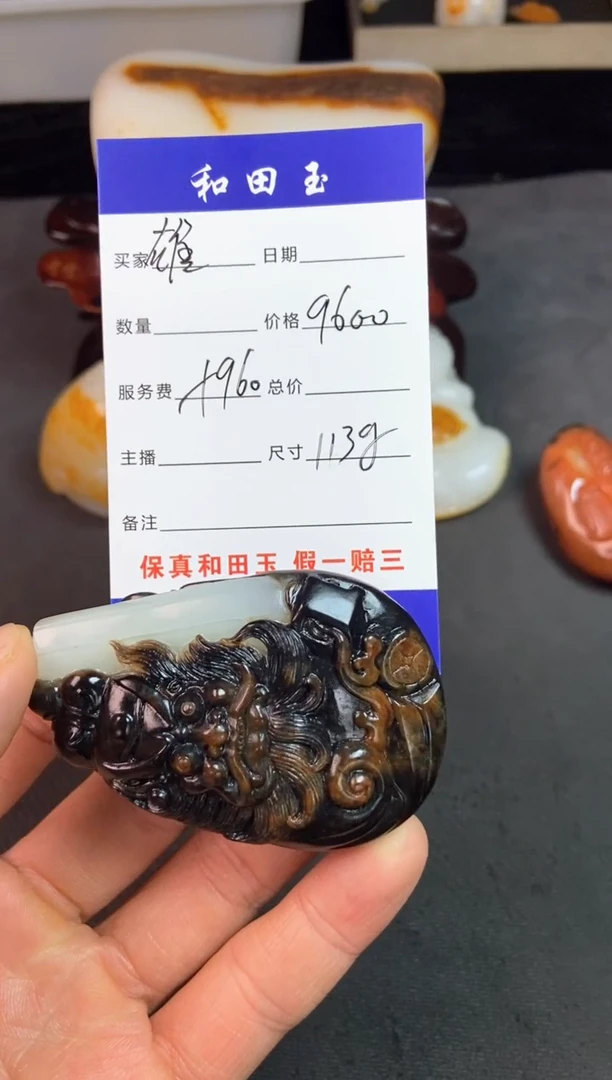 和田玉
买家 雄 日期
数量 价格 9600
服务费 +960 总价
主播 尺寸 113g
备注
保真和田玉 假一赔三